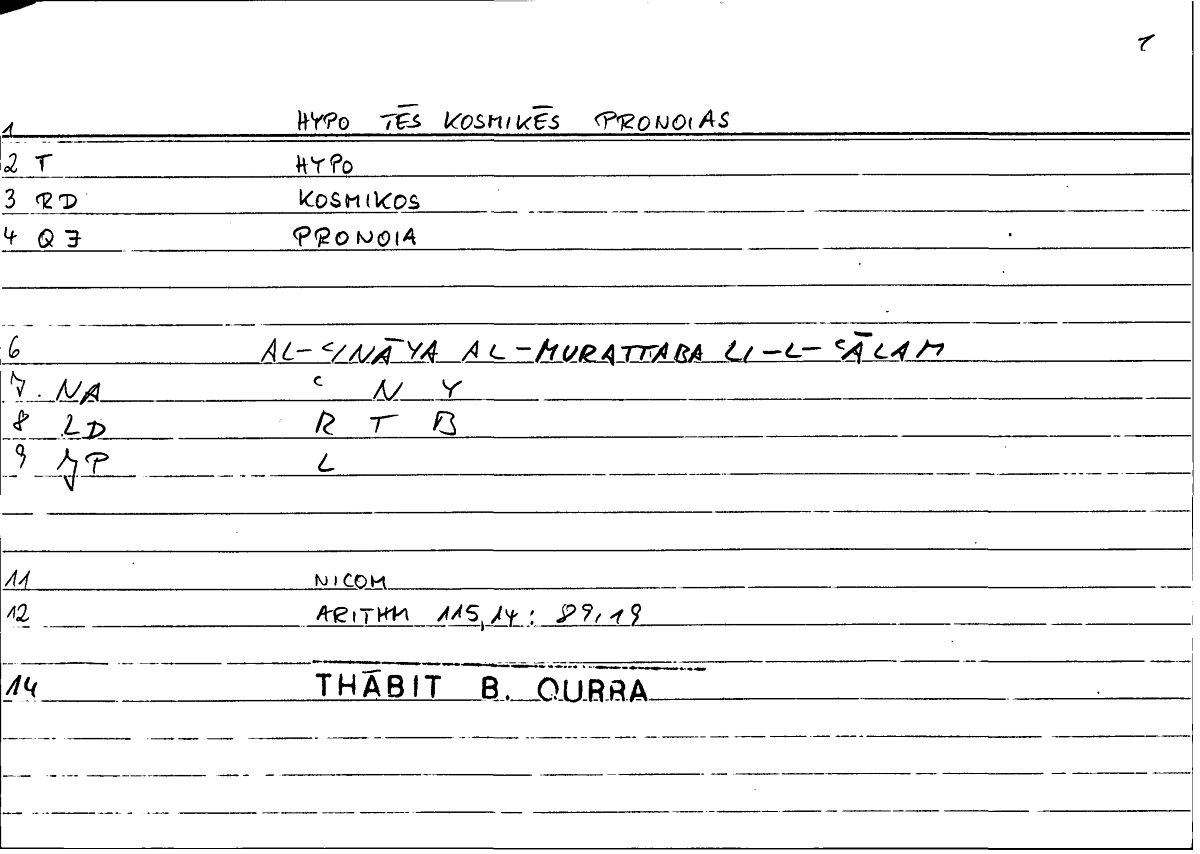 1
1 HYPO TĒS KOSMIKĒS PRONOIAS
2 T HYPO
3 RD KOSMIKOS
4 QJ PRONOIA
6 AL-ʿINĀYA AL-MURATTABA LI-L-ʿĀLAM
7. NA ʿ N Y
8 LD R T B
9 JP L
11 NICOM
12 ARITHM 115,14: 89,19
14 THĀBIT B. QURRA